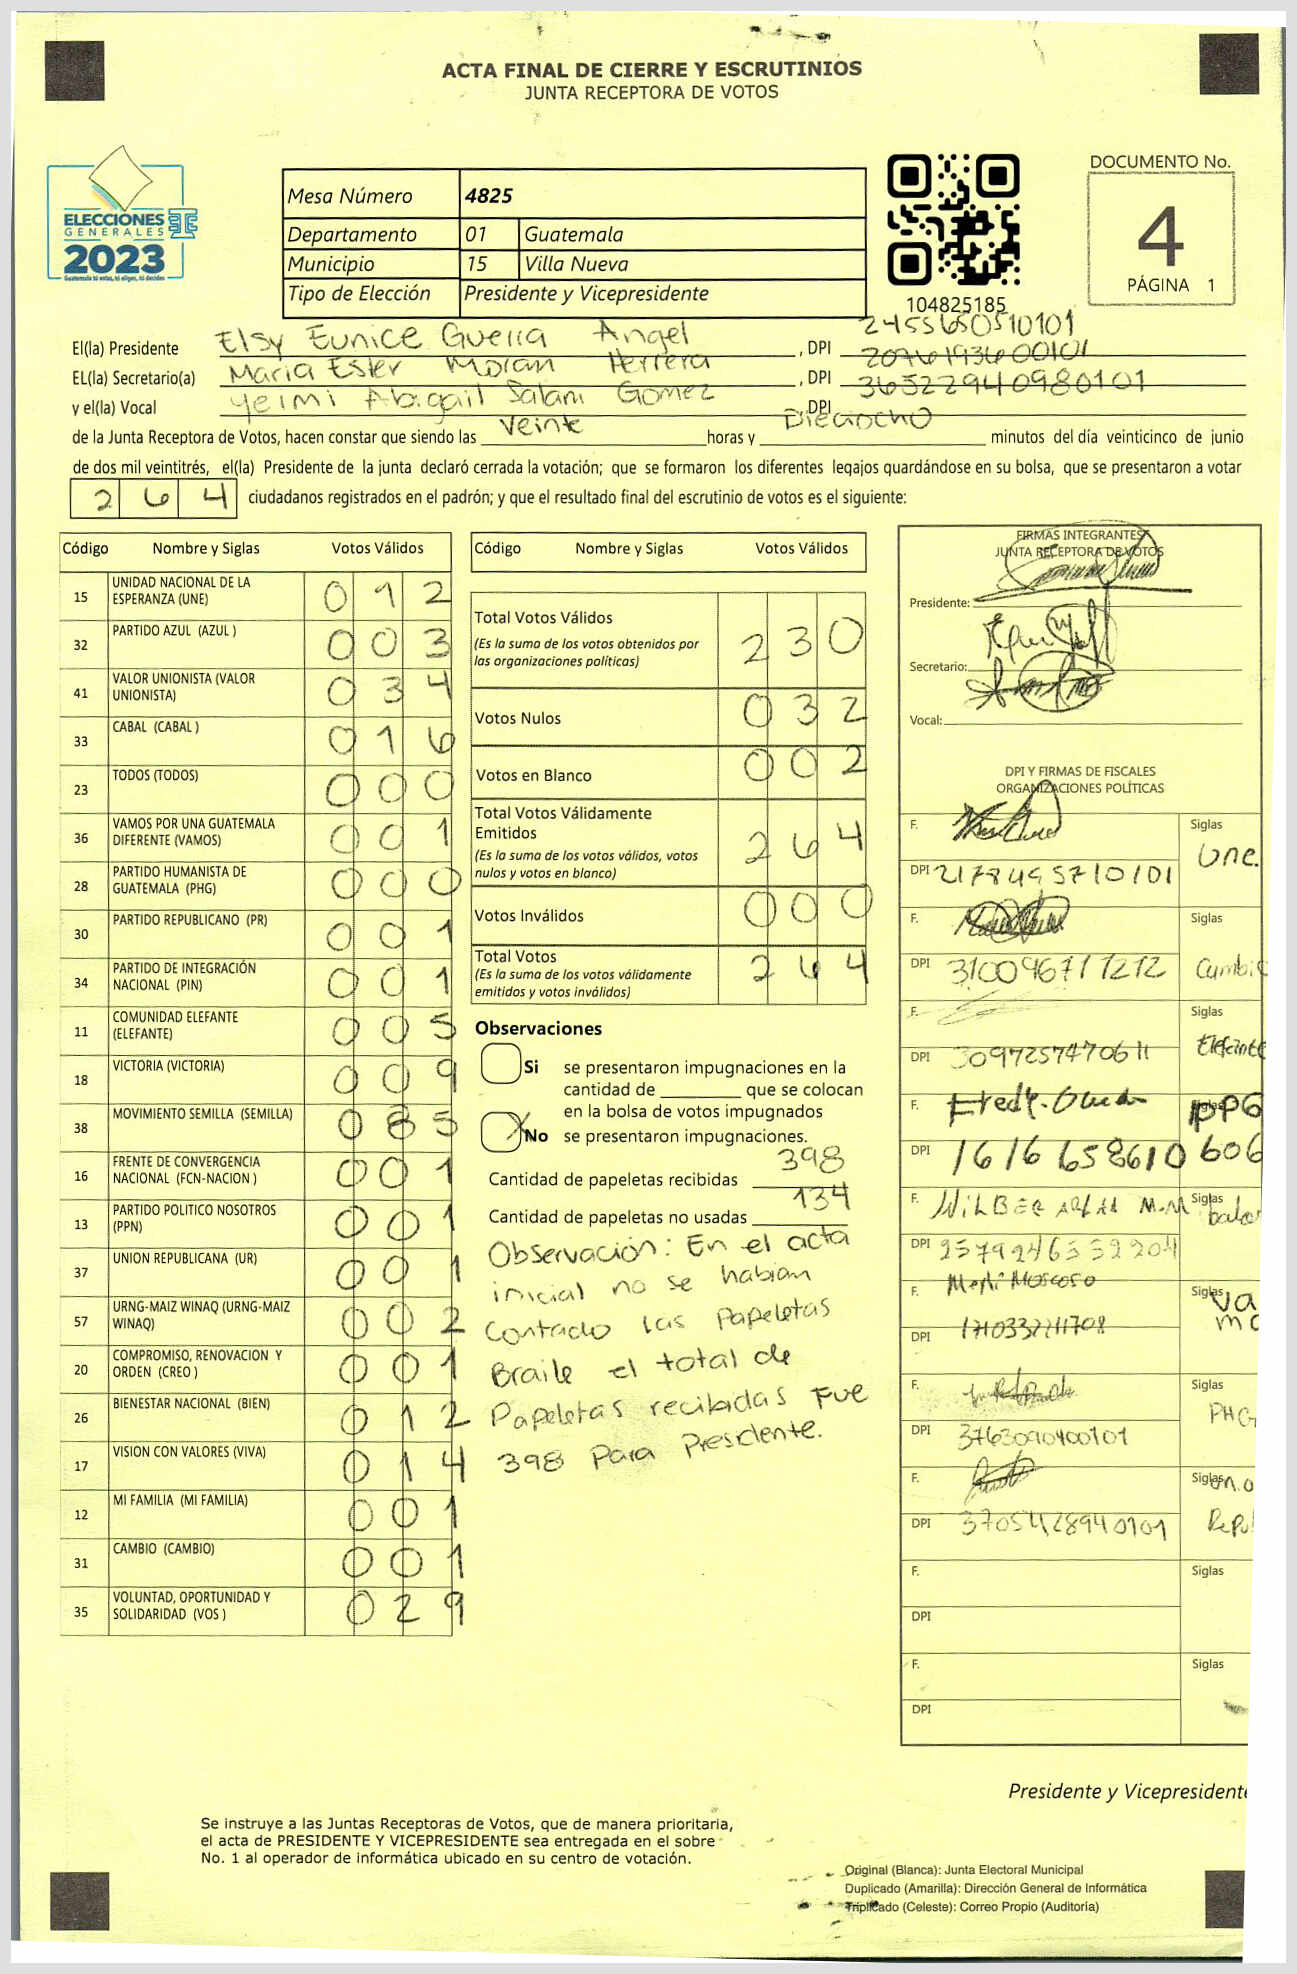 ACTA FINAL DE CIERRE Y ESCRUTINIOS
JUNTA RECEPTORA DE VOTOS
ELECCIONES
GENERALES
2023
Guatemala tú votas, tú eliges, tú decides
Mesa Número 4825
Departamento 01 Guatemala
Municipio 15 Villa Nueva
Tipo de Elección Presidente y Vicepresidente
104825185
DOCUMENTO No.
4
PÁGINA 1
El(la) Presidente Elsy Eunice Guerra Angel , DPI 2455650510101
EL(la) Secretario(a) Maria Ester Moran Herrera , DPI 2076193600101
y el(la) Vocal Yeimi Abigail Salam Gomez , DPI 36522940980101
de la Junta Receptora de Votos, hacen constar que siendo las Veinte horas y Dieciocho minutos del día veinticinco de junio
de dos mil veintitrés, el(la) Presidente de la junta declaró cerrada la votación; que se formaron los diferentes legajos guardándose en su bolsa, que se presentaron a votar
264 ciudadanos registrados en el padrón; y que el resultado final del escrutinio de votos es el siguiente:
Código Nombre y Siglas Votos Válidos
15 UNIDAD NACIONAL DE LA ESPERANZA (UNE) 012
32 PARTIDO AZUL (AZUL ) 003
41 VALOR UNIONISTA (VALOR UNIONISTA) 034
33 CABAL (CABAL ) 016
23 TODOS (TODOS) 000
36 VAMOS POR UNA GUATEMALA DIFERENTE (VAMOS) 001
28 PARTIDO HUMANISTA DE GUATEMALA (PHG) 000
30 PARTIDO REPUBLICANO (PR) 001
34 PARTIDO DE INTEGRACIÓN NACIONAL (PIN) 001
11 COMUNIDAD ELEFANTE (ELEFANTE) 005
18 VICTORIA (VICTORIA) 009
38 MOVIMIENTO SEMILLA (SEMILLA) 085
16 FRENTE DE CONVERGENCIA NACIONAL (FCN-NACION ) 001
13 PARTIDO POLITICO NOSOTROS (PPN) 001
37 UNION REPUBLICANA (UR) 001
57 URNG-MAIZ WINAQ (URNG-MAIZ WINAQ) 002
20 COMPROMISO, RENOVACION Y ORDEN (CREO ) 001
26 BIENESTAR NACIONAL (BIEN) 012
17 VISION CON VALORES (VIVA) 014
12 MI FAMILIA (MI FAMILIA) 001
31 CAMBIO (CAMBIO) 001
35 VOLUNTAD, OPORTUNIDAD Y SOLIDARIDAD (VOS ) 029
Código Nombre y Siglas Votos Válidos
Total Votos Válidos 230
(Es la suma de los votos obtenidos por las organizaciones políticas)
Votos Nulos 032
Votos en Blanco 002
Total Votos Válidamente Emitidos 264
(Es la suma de los votos válidos, votos nulos y votos en blanco)
Votos Inválidos 000
Total Votos 264
(Es la suma de los votos válidamente emitidos y votos inválidos)
Observaciones
Si se presentaron impugnaciones en la
cantidad de ________ que se colocan
en la bolsa de votos impugnados
X No se presentaron impugnaciones.
Cantidad de papeletas recibidas 398
Cantidad de papeletas no usadas 134
Observación: En el acta
inicial no se habian
Contado las Papeletas
Braile el total de
Papeletas recibidas Fue
398 Para Presidente.
FIRMAS INTEGRANTES
JUNTA RECEPTORA DE VOTOS
Presidente:
Secretario:
Vocal:
DPI Y FIRMAS DE FISCALES
ORGANIZACIONES POLÍTICAS
F. Siglas Une.
DPI 2178495710101
F. Siglas
DPI 310096711212
F. Siglas Elefante
DPI 3097257470611
F. Siglas
DPI 1616658610606
F. Siglas
DPI
F. Siglas
DPI 1710332211708
F. Siglas PHG
DPI 3763090400101
F. Siglas
DPI 3705428940101
F. Siglas
DPI
F. Siglas
DPI
Presidente y Vicepresidente
Se instruye a las Juntas Receptoras de Votos, que de manera prioritaria,
el acta de PRESIDENTE Y VICEPRESIDENTE sea entregada en el sobre
No. 1 al operador de informática ubicado en su centro de votación.
Original (Blanca): Junta Electoral Municipal
Duplicado (Amarilla): Dirección General de Informática
Triplicado (Celeste): Correo Propio (Auditoría)